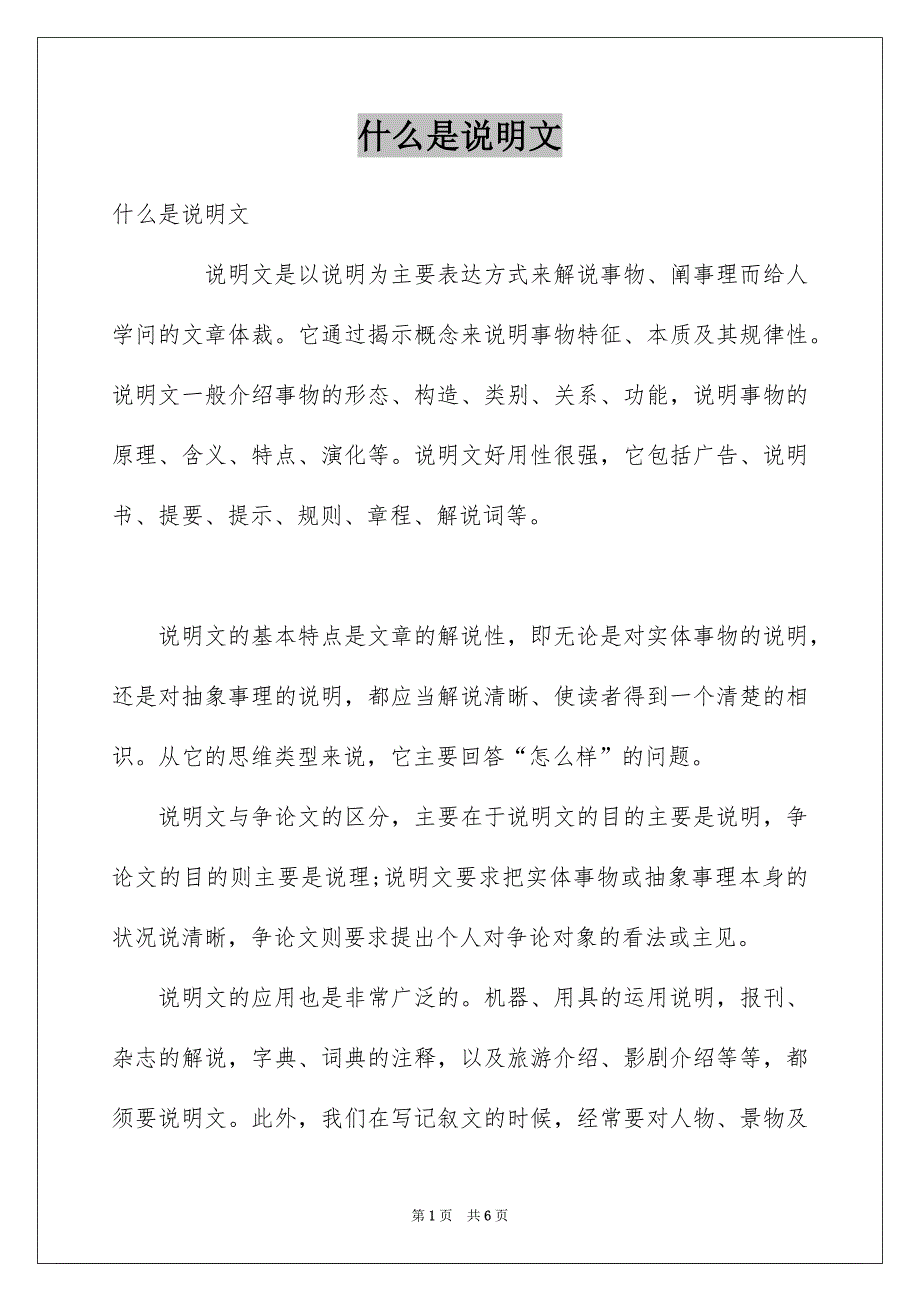 什么是说明文
什么是说明文
说明文是以说明为主要表达方式来解说事物、阐事理而给人
学问的文章体裁。它通过揭示概念来说明事物特征、本质及其规律性。
说明文一般介绍事物的形态、构造、类别、关系、功能，说明事物的
原理、含义、特点、演化等。说明文好用性很强，它包括广告、说明
书、提要、提示、规则、章程、解说词等。
说明文的基本特点是文章的解说性，即无论是对实体事物的说明，
还是对抽象事理的说明，都应当解说清晰、使读者得到一个清楚的相
识。从它的思维类型来说，它主要回答“怎么样”的问题。
说明文与争论文的区分，主要在于说明文的目的主要是说明，争
论文的目的则主要是说理;说明文要求把实体事物或抽象事理本身的
状况说清晰，争论文则要求提出个人对争论对象的看法或主见。
说明文的应用也是非常广泛的。机器、用具的运用说明，报刊、
杂志的解说，字典、词典的注释，以及旅游介绍、影剧介绍等等，都
须要说明文。此外，我们在写记叙文的时候，经常要对人物、景物及
第 1 页 共 6 页